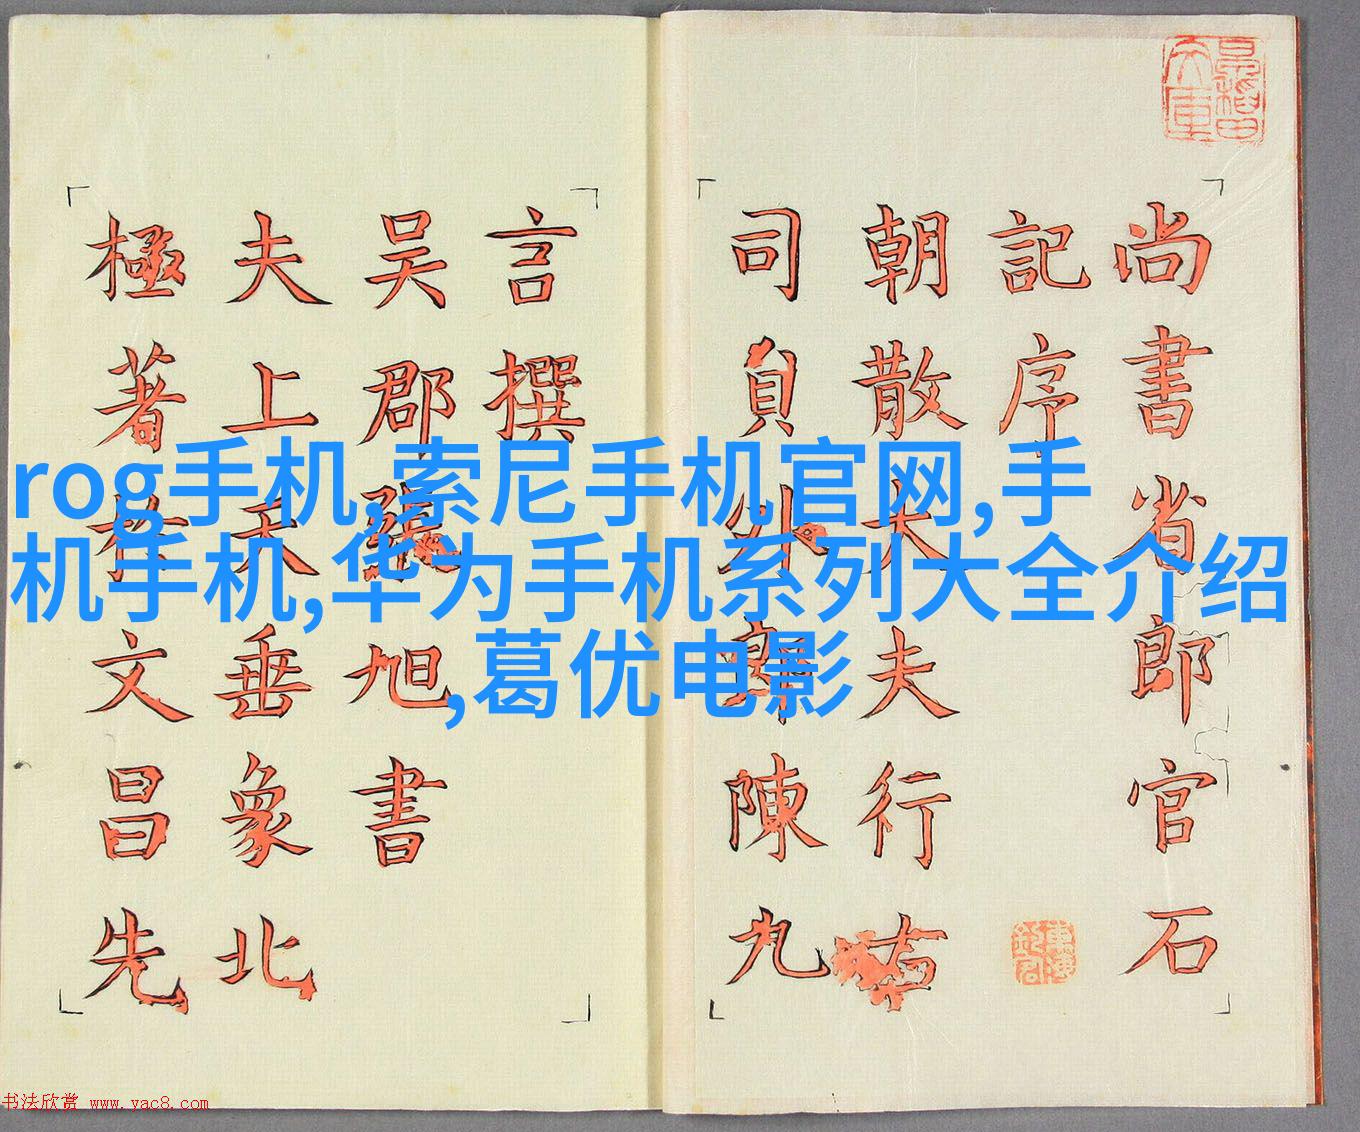 尚書省郎官石
記序
朝散大夫行右
司員外郎陳九
言撰
吳郡張旭書
夫上天垂象北
極著於文昌先
rog手机,索尼手机官网,手
机手机,华为手机系列大全介绍
,葛优电影
书法欣赏 www.yac8.com